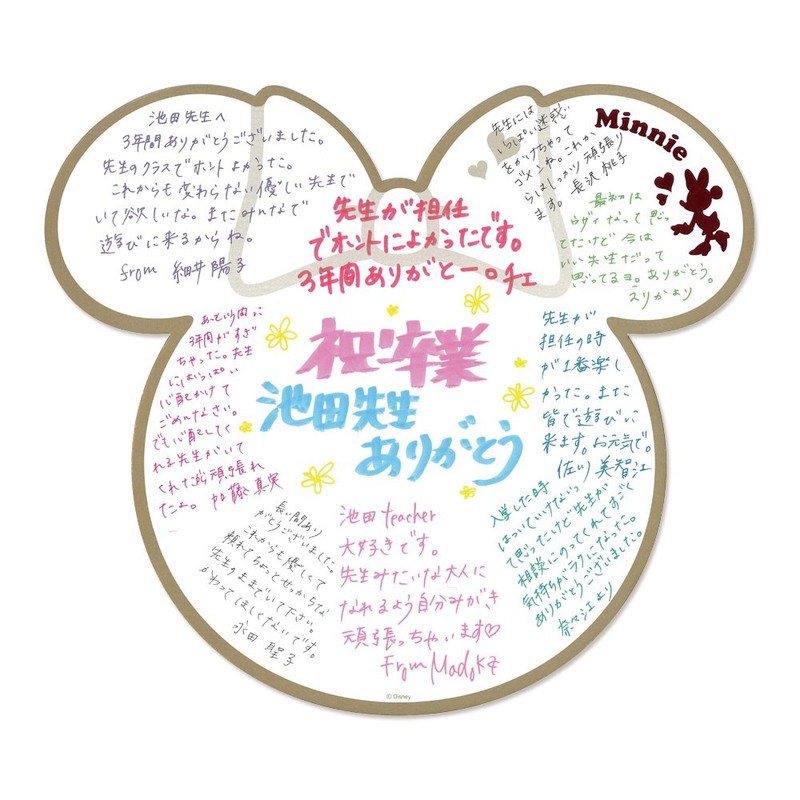 池田先生へ
3年間ありがとうございました。
先生のクラスでホントよかった。
これからも変わらない優しい先生で
いて欲しいな。またみんなで
遊びに来るからね。
from 細井陽子
先生が担任
でホントによかったです。
3年間ありがとー。チエ
先生には
いっぱい迷惑
とかけちゃって
ゴメンね。これか
らはしっかり頑張り
ます。長沢 桃子
Minnie
最初は
ウザイなって思っ
てたけど今は
いい先生だって
思ってるヨ。ありがとう。
えりかより
あっという間に
3年間がすぎ
ちゃった。先生
にはいっぱい
心配かけて
ごめんなさい。
でも心配してく
れる先生がいて
くれたから頑張れ
たよ。加藤真実
祝卒業
池田先生
ありがとう
先生が
担任の時
が1番楽し
かった。また
皆で遊びに
来ます。お元気で。
佐川美智江
長い間あり
がとうございました。
これからも優しくて
頼れてちょっとせっかちな
先生のままでいて下さい。
かわってほしくないです。
永田 聖子
池田teacher
大好きです。
先生みたいな大人に
なれるよう自分みがき
頑張っちゃいます♡
From Madoka
入学した時
はついていけないっ
て思ったけど先生が
相談にのってくれてすごく
気持ちがラクになった。
ありがとうございました。
奈江より
© Disney